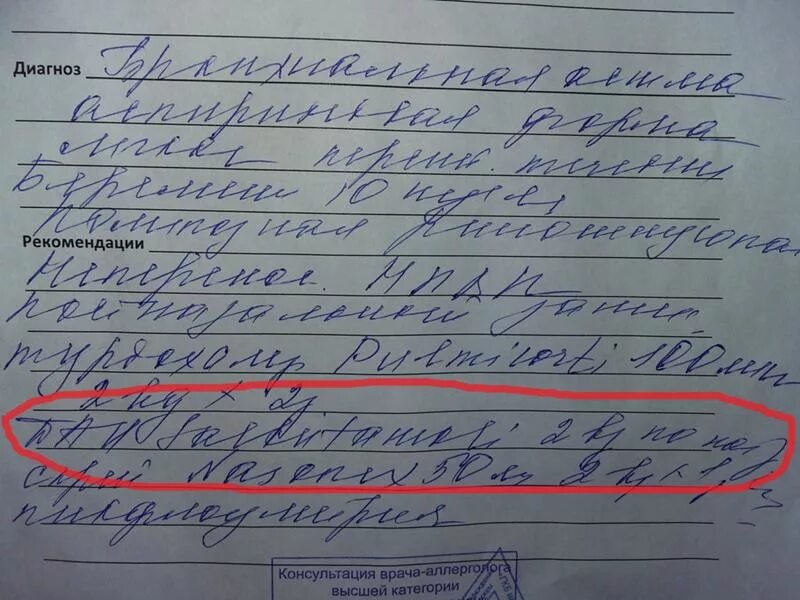 Диагноз Бронхиальная астма
аспириновая форма
легкое персист. течение
Беременн 10 недель
Полипозная риносинусопат
Рекомендации
Неперенос. НПВП
турбохалер Pulmicorti 100 мкг
2 вд х 2р
ДАИ Salbutamoli 2 вд по
спрей Nasonex 50 2 вд х 1р
пикфлоуметрия
Консультация врача-аллерголога
высшей категории